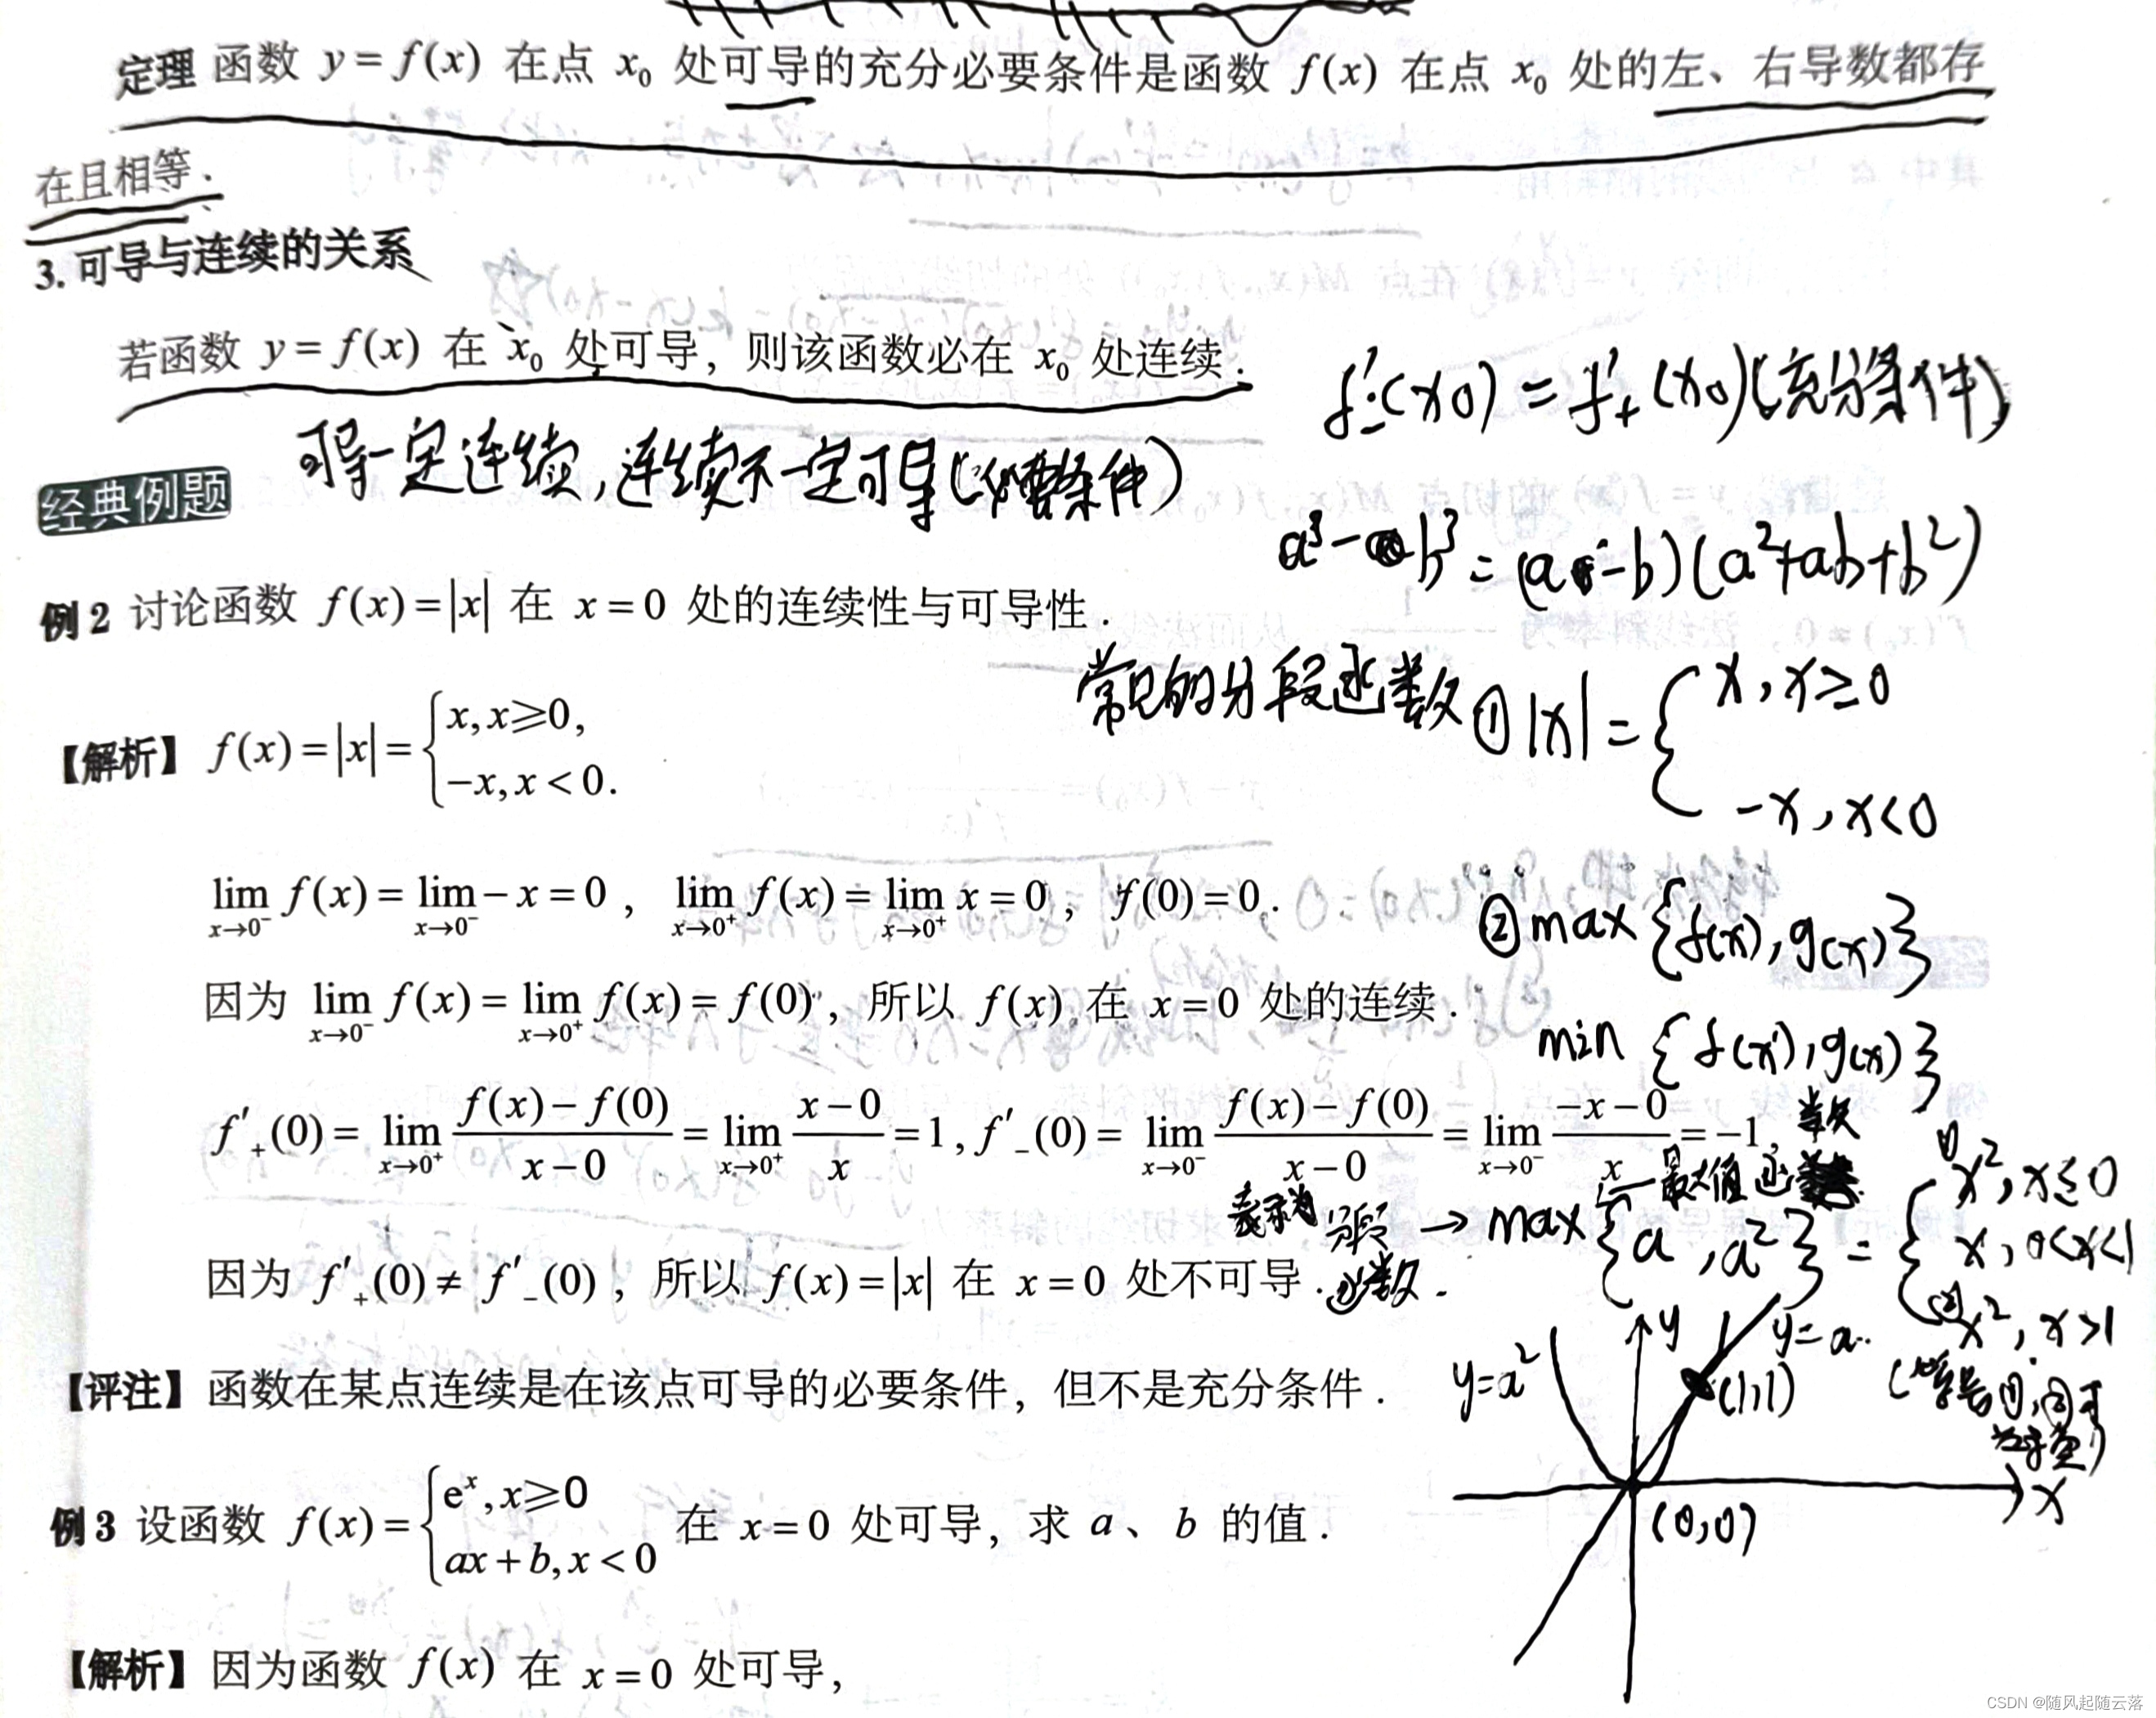 定理 函数 y = f(x) 在点 x₀ 处可导的充分必要条件是函数 f(x) 在点 x₀ 处的左、右导数都存
在且相等.
3. 可导与连续的关系
若函数 y = f(x) 在 x₀ 处可导，则该函数必在 x₀ 处连续.
f'₋(x0) = f'₊(x0)(充分条件)
可导一定连续，连续不一定可导(必要条件)
经典例题
a³ - b³ = (a - b)(a² + ab + b²)
例 2 讨论函数 f(x) = |x| 在 x = 0 处的连续性与可导性.
常见的分段函数 ① |x| = { x, x ≥ 0
-x, x < 0
【解析】 f(x) = |x| = { x, x ⩾ 0,
-x, x < 0.
lim_{x→0⁻} f(x) = lim_{x→0⁻} -x = 0， lim_{x→0⁺} f(x) = lim_{x→0⁺} x = 0， f(0) = 0.
② max {f(x), g(x)}
因为 lim_{x→0⁻} f(x) = lim_{x→0⁺} f(x) = f(0)，所以 f(x) 在 x = 0 处的连续.
min {f(x), g(x)}
f'₊(0) = lim_{x→0⁺} (f(x) - f(0))/(x - 0) = lim_{x→0⁺} (x - 0)/x = 1, f'₋(0) = lim_{x→0⁻} (f(x) - f(0))/(x - 0) = lim_{x→0⁻} (-x - 0)/x = -1,
最大值函数
表示为 分段函数. → max {a, a²} = { ① x², x ≤ 0
x, 0 < x < 1
② x², x > 1
因为 f'₊(0) ≠ f'₋(0)，所以 f(x) = |x| 在 x = 0 处不可导.
y = a²
y
y = a
(1,1)
(等号①,②可
【评注】函数在某点连续是在该点可导的必要条件，但不是充分条件.
x
(0,0)
例 3 设函数 f(x) = { eˣ, x ⩾ 0
ax + b, x < 0 在 x = 0 处可导，求 a、b 的值.
【解析】因为函数 f(x) 在 x = 0 处可导，
CSDN @随风起随云落